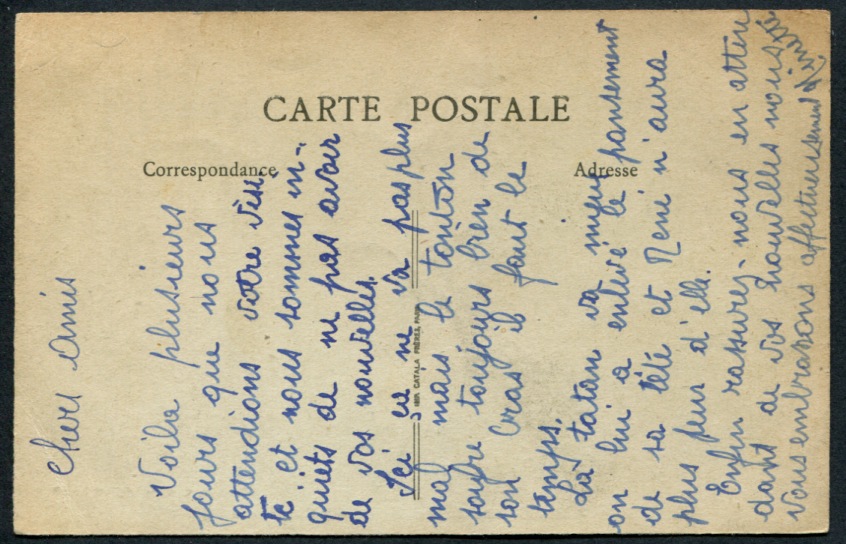 CARTE POSTALE
Correspondance
Adresse
IMP. CATALA FRÈRES, PARIS
Chers Amis
Voilà plusieurs
jours que nous
attendions votre visi-
te et nous sommes in-
quiets de ne pas avoir
de vos nouvelles.
Ici ça ne va pas plus
mal mais le tonton
soufre toujours bien de
son bras il faut le
temps.
La tatan va mieux
on lui a enlevé le pansement
de sa tête et René n'aura
plus peur d'elle.
Enfin rassurez-nous en atten
dant de vos nouvelles nous
vous embrasons affectueusement